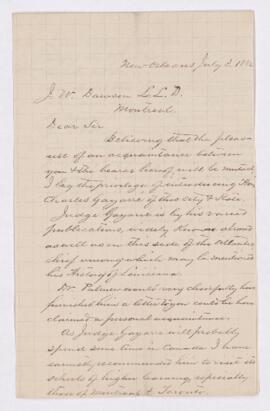 New Orleans July 3. 1882
J. W. Dawson L.L.D.
Montreal.
Dear Sir
Believing that the pleas-
ure of an acquaintance between
you & the bearer hereof will be mutual
I beg the privilege of introducing Hon
Charles Gayarré of this City & State.
Judge Gayarré is by his varied
publications, widely known abroad
as well as on this side of the Atlantic
chief among which may be mentioned
his History of Louisiana.
Dr. Palmer would very cheerfully have
furnished him a letter to you could he have
claimed a personal acquaintance.
As Judge Gayarré will probably
spend some time in Canada I have
earnestly recommended him to visit its
schools of higher learning especially
those of Montreal & Toronto.